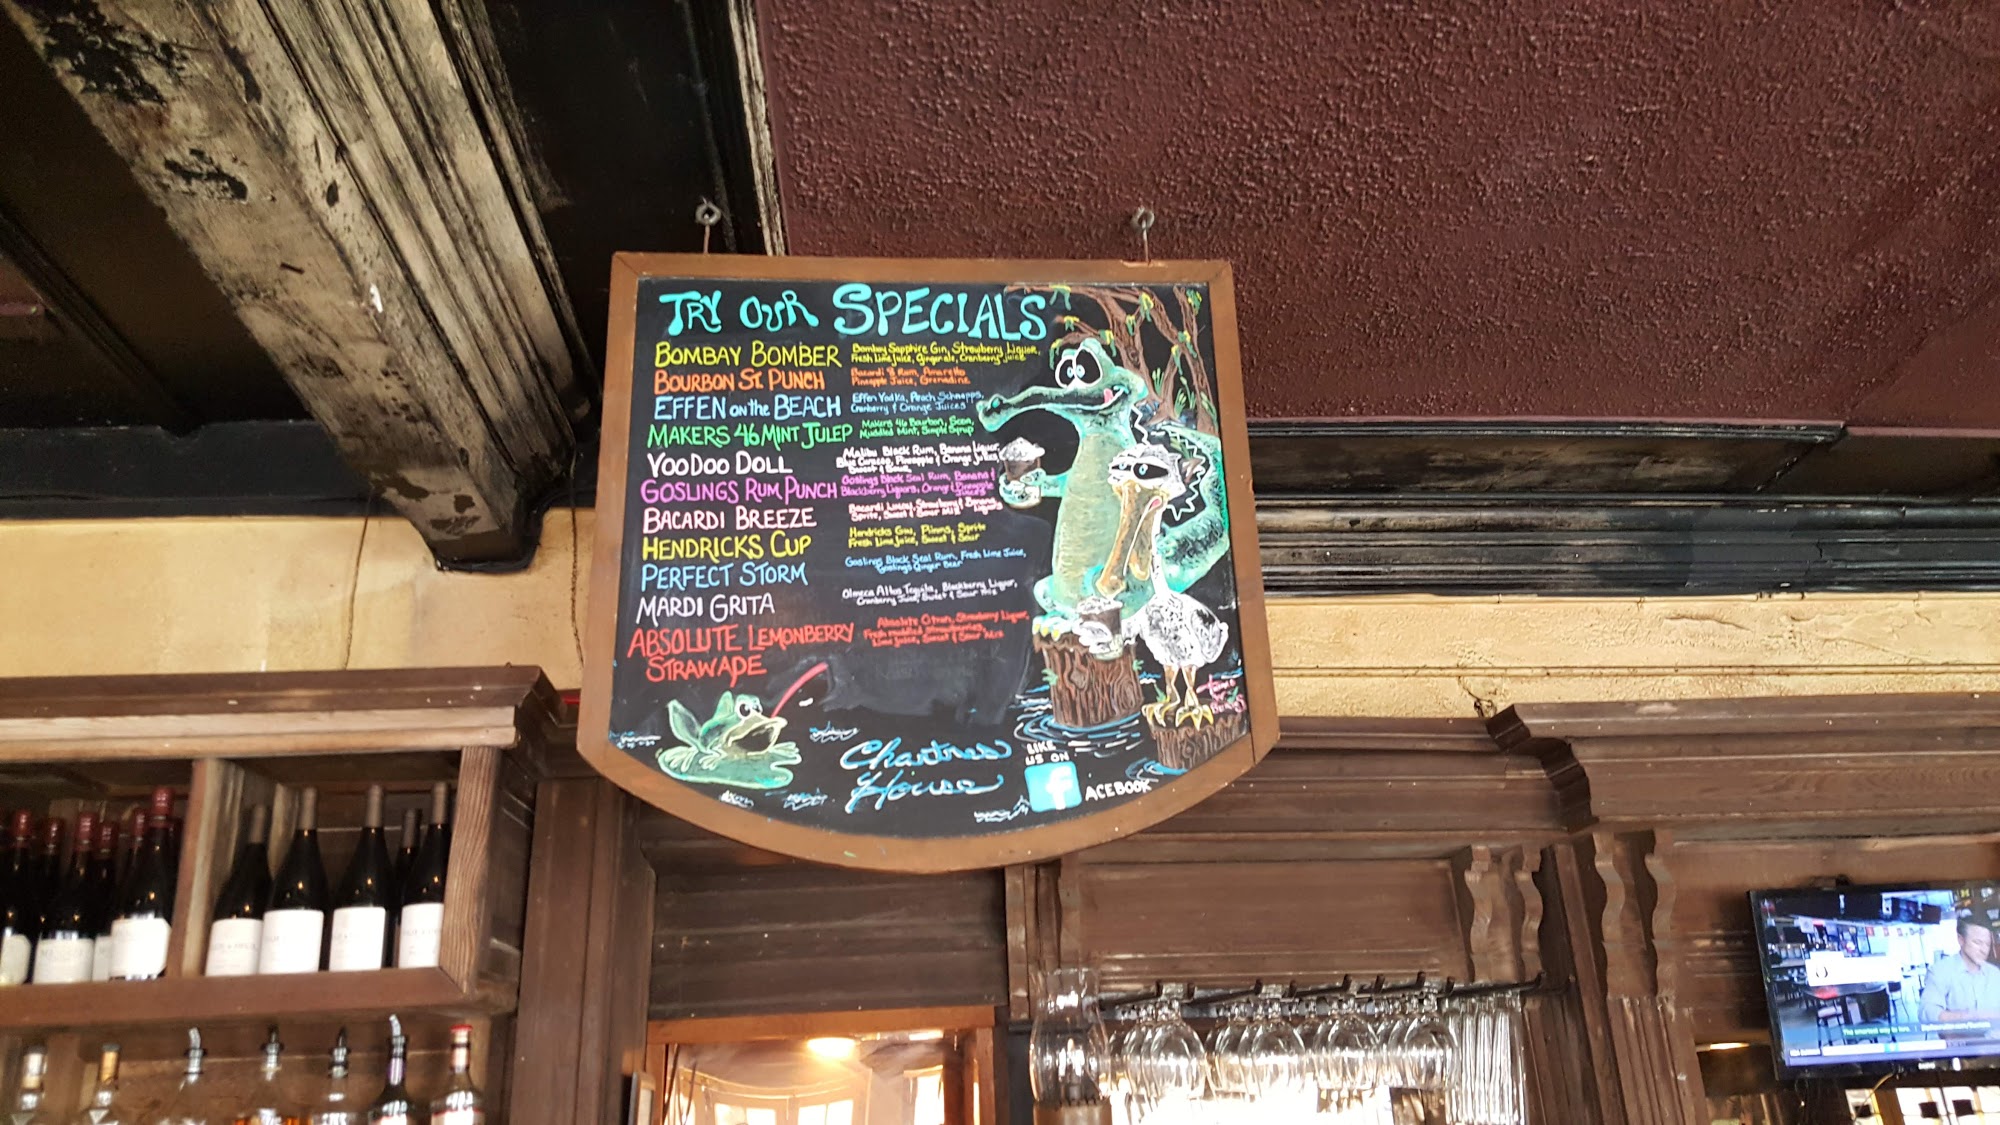 TRY OUR SPECIALS
BOMBAY BOMBER
Bombay Sapphire Gin, Strawberry Liquor,
Fresh Lime Juice, Ginger ale, Cranberry Juice
BOURBON ST. PUNCH
Bacardi 8 Rum, Amaretto
Pineapple Juice, Grenadine
EFFEN on the BEACH
Effen Vodka, Peach Schnapps,
Cranberry & Orange Juices
MAKERS 46 MINT JULEP
Makers 46 Bourbon,
Muddled Mint, Simple Syrup
VOODOO DOLL
Malibu Black Rum, Banana Liquor
Blue Curacao, Pineapple & Orange Juices,
Sweet & Sour
GOSLINGS RUM PUNCH
Goslings Black Seal Rum, Banana &
Blackberry Liquors, Orange & Pineapple
Juices
BACARDI BREEZE
Bacardi Strawberry & Banana
Liquors
Sprite, Sweet & Sour Mix
HENDRICKS CUP
Hendricks Gin, Pimms, Sprite
Fresh Lime Juice, Sweet & Sour
PERFECT STORM
Goslings Black Seal Rum, Fresh Lime Juice,
Goslings Ginger Bear
MARDI GRITA
Olmeca Altos Tequila, Blackberry Liquor,
Cranberry Juice, Sweet & Sour Mix
ABSOLUTE LEMONBERRY
STRAWADE
Absolute Citron, Strawberry Liquor,
Fresh muddled Strawberries,
Lime Juice, Sweet & Sour Mix
Chartres
House
LIKE
US ON
f ACEBOOK